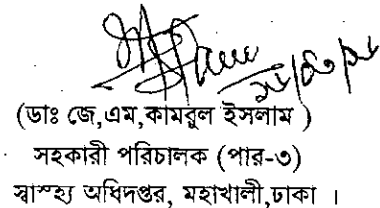 (ডাঃ জে,এম,কামরুল ইসলাম )
সহকারী পরিচালক (পার-৩)
স্বাস্হ্য অধিদপ্তর, মহাখালী,ঢাকা ।